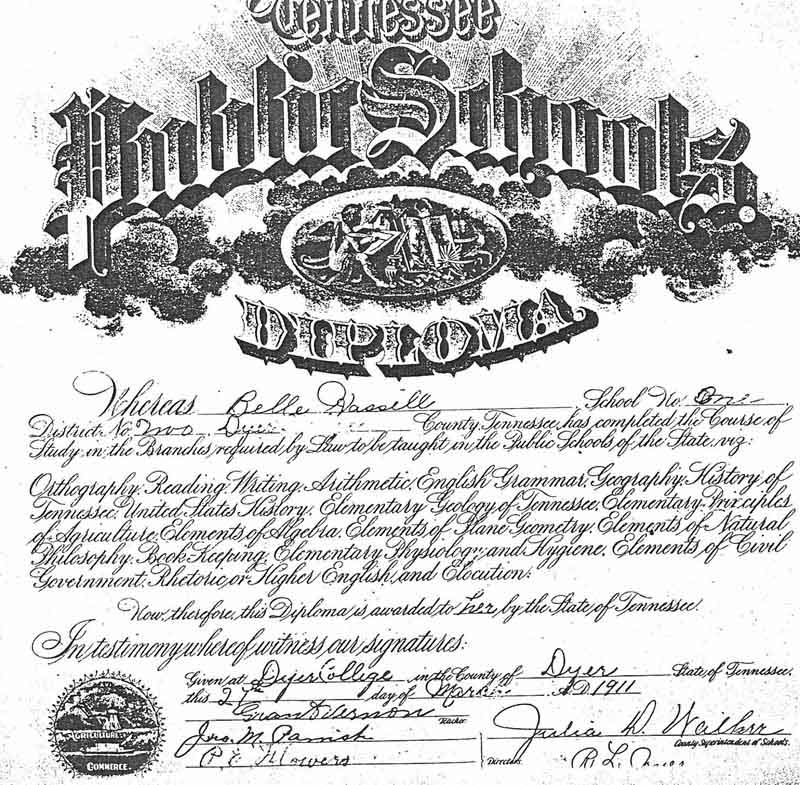 Tennessee
Public Schools.
DIPLOMA.
Whereas Belle Hassell School No. One
District No. Two Dyer County, Tennessee, has completed the Course of
Study in the Branches required by Law to be taught in the Public Schools of the State, viz:
Orthography, Reading, Writing, Arithmetic, English Grammar, Geography, History of
Tennessee, United States History, Elementary Geology of Tennessee, Elementary Principles
of Agriculture, Elements of Algebra, Elements of Plane Geometry, Elements of Natural
Philosophy, Book Keeping, Elementary Physiology and Hygiene, Elements of Civil
Government, Rhetoric or Higher English, and Elocution:
Now, therefore, this Diploma is awarded to her by the State of Tennessee.
In testimony whereof witness our signatures:
Given at Dyer College in the County of Dyer State of Tennessee.
this day of A.D. 1911
Grant Vernon Teacher
Jno. M. Parrish Julia D.
County Superintendent of Schools.
Flowers Directors R. L.
AGRICULTURE
COMMERCE.